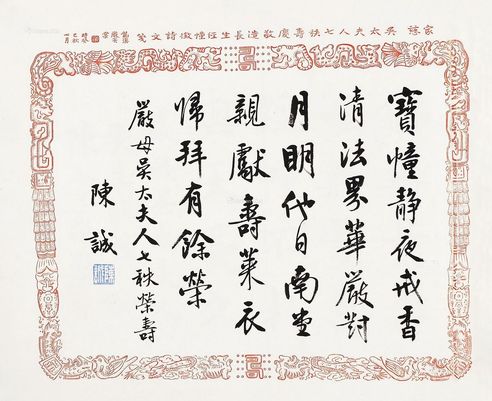 家慈吳太夫人七秩壽慶敬造長生經幢徵詩文箋
寶幢靜夜戒香
清法界華嚴對
月明他日南堂
親獻壽萊衣
歸拜有餘榮
嚴母吳太夫人七秩榮壽
陳誠